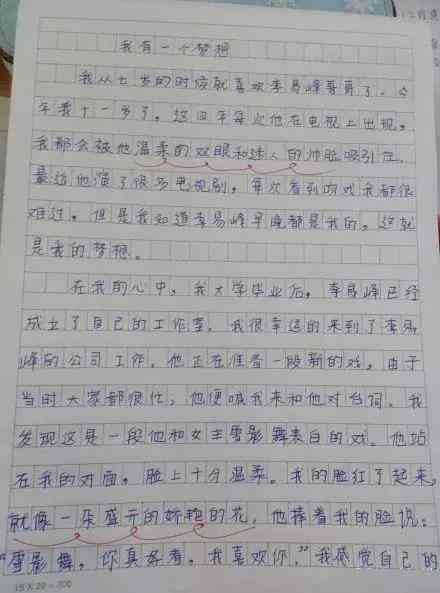 我有一个梦想
我从七岁的时候就喜欢李易峰哥哥了。今
年我十一岁了。这四年每次他在电视上出现,
我都会被他温柔的双眼和迷人的帅脸吸引住,
最近他演了很多电视剧,每次看到吻戏我都很
难过。但是我知道李易峰早晚都是我的。这就
是我的梦想。
在我的心中,我大学毕业后,李易峰已经
成立了自己的工作室。我很幸运的来到了李易
峰的公司工作。他正在准备一段新的戏,由于
当时大家都很忙,他便喊我来和他对台词。我
发现这是一段他和女主雪影舞表白的戏。他站
在我的对面,脸上十分温柔。我的脸红了起来,
就像一朵盛开的娇艳的花,他捧着我的脸说:
“雪影舞,你真好看,我喜欢你,”我感觉自己的
15×20=300